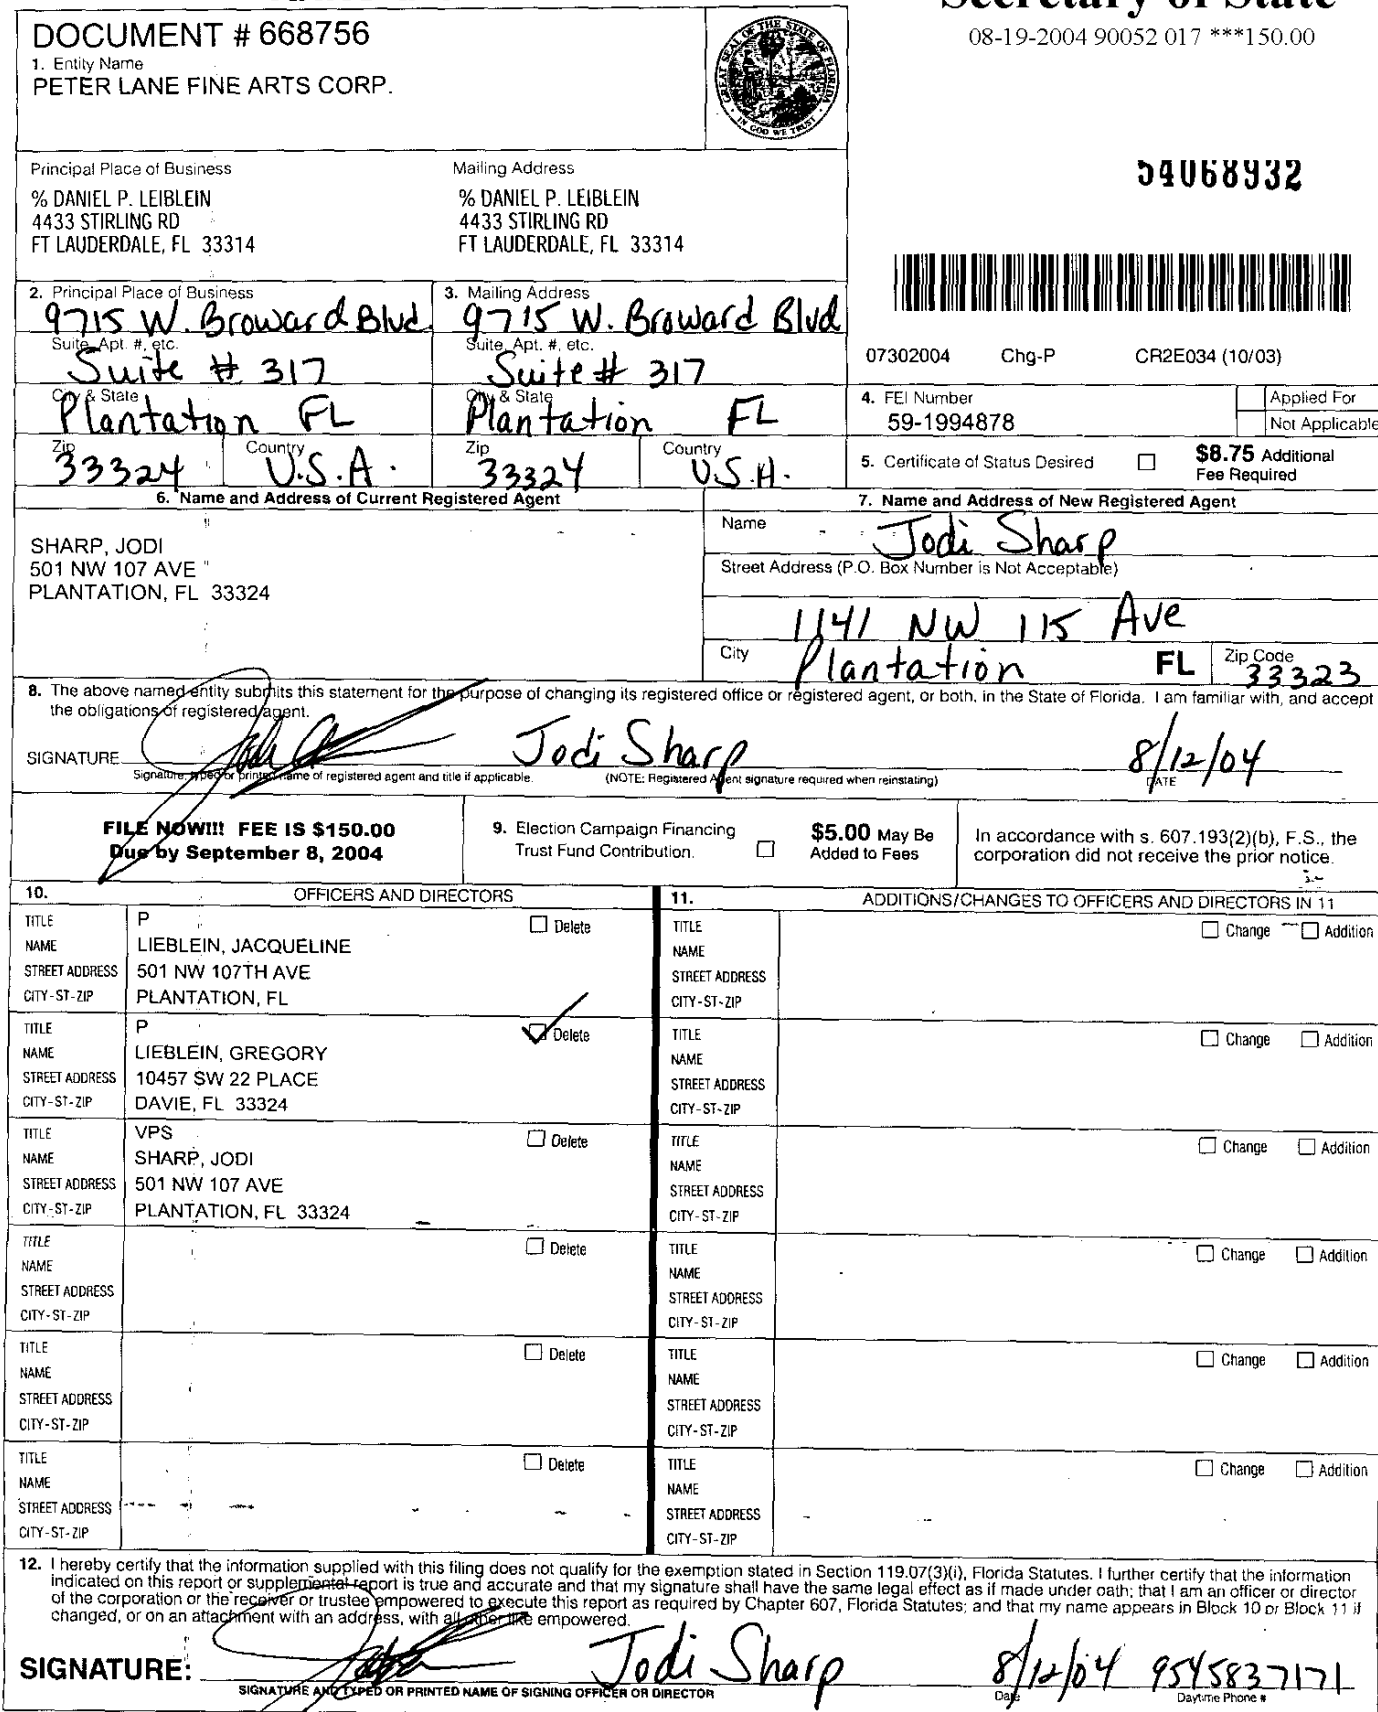 Secretary of State
08-19-2004 90052 017 ***150.00
DOCUMENT # 668756
1. Entity Name
PETER LANE FINE ARTS CORP.
GREAT SEAL OF THE STATE OF FLORIDA
IN GOD WE TRUST
54068932
Principal Place of Business
% DANIEL P. LEIBLEIN
4433 STIRLING RD
FT LAUDERDALE, FL 33314
Mailing Address
% DANIEL P. LEIBLEIN
4433 STIRLING RD
FT LAUDERDALE, FL 33314
2. Principal Place of Business
9715 W. Broward Blvd
Suite, Apt. #, etc.
Suite # 317
City & State
Plantation FL
Zip Country
33324 U.S.A.
3. Mailing Address
9715 W. Broward Blvd
Suite, Apt. #, etc.
Suite # 317
City & State
Plantation FL
Zip Country
33324 U.S.A.
07302004 Chg-P CR2E034 (10/03)
4. FEI Number
59-1994878
Applied For
Not Applicable
5. Certificate of Status Desired
$8.75 Additional
Fee Required
6. Name and Address of Current Registered Agent
SHARP, JODI
501 NW 107 AVE
PLANTATION, FL 33324
7. Name and Address of New Registered Agent
Name
Jodi Sharp
Street Address (P.O. Box Number is Not Acceptable)
1141 NW 115 Ave
City
Plantation FL
Zip Code
33323
8. The above named entity submits this statement for the purpose of changing its registered office or registered agent, or both, in the State of Florida. I am familiar with, and accept
the obligations of registered agent.
SIGNATURE Jodi Sharp 8/12/04
Signature, typed or printed name of registered agent and title if applicable. (NOTE: Registered Agent signature required when reinstating) DATE
FILE NOW!!! FEE IS $150.00
Due by September 8, 2004
9. Election Campaign Financing
Trust Fund Contribution.
$5.00 May Be
Added to Fees
In accordance with s. 607.193(2)(b), F.S., the
corporation did not receive the prior notice.
10. OFFICERS AND DIRECTORS
TITLE P Delete
NAME LIEBLEIN, JACQUELINE
STREET ADDRESS 501 NW 107TH AVE
CITY-ST-ZIP PLANTATION, FL
TITLE P Delete
NAME LIEBLEIN, GREGORY
STREET ADDRESS 10457 SW 22 PLACE
CITY-ST-ZIP DAVIE, FL 33324
TITLE VPS Delete
NAME SHARP, JODI
STREET ADDRESS 501 NW 107 AVE
CITY-ST-ZIP PLANTATION, FL 33324
TITLE Delete
NAME
STREET ADDRESS
CITY-ST-ZIP
TITLE Delete
NAME
STREET ADDRESS
CITY-ST-ZIP
TITLE Delete
NAME
STREET ADDRESS
CITY-ST-ZIP
11. ADDITIONS/CHANGES TO OFFICERS AND DIRECTORS IN 11
TITLE Change Addition
NAME
STREET ADDRESS
CITY-ST-ZIP
TITLE Change Addition
NAME
STREET ADDRESS
CITY-ST-ZIP
TITLE Change Addition
NAME
STREET ADDRESS
CITY-ST-ZIP
TITLE Change Addition
NAME
STREET ADDRESS
CITY-ST-ZIP
TITLE Change Addition
NAME
STREET ADDRESS
CITY-ST-ZIP
TITLE Change Addition
NAME
STREET ADDRESS
CITY-ST-ZIP
12. I hereby certify that the information supplied with this filing does not qualify for the exemption stated in Section 119.07(3)(i), Florida Statutes. I further certify that the information
indicated on this report or supplemental report is true and accurate and that my signature shall have the same legal effect as if made under oath; that I am an officer or director
of the corporation or the receiver or trustee empowered to execute this report as required by Chapter 607, Florida Statutes; and that my name appears in Block 10 or Block 11 if
changed, or on an attachment with an address, with all other like empowered.
SIGNATURE: Jodi Sharp 8/12/04 9545837171
SIGNATURE AND TYPED OR PRINTED NAME OF SIGNING OFFICER OR DIRECTOR Date Daytime Phone #